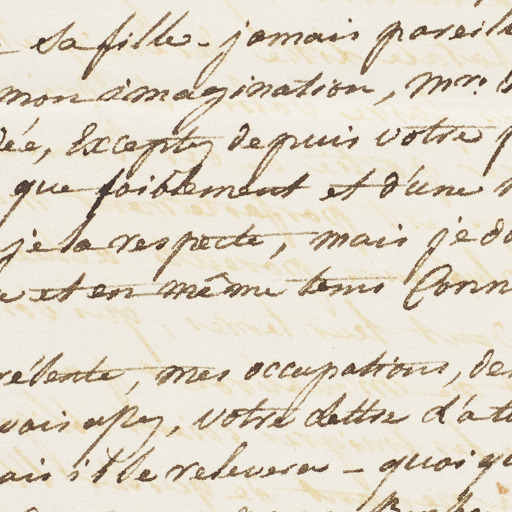 sa fille - jamais pareil
mon imagination, Mr.
dée, Excepté depuis votre
que foiblement et d'une
je la respecte, mais je do
et en même tems Conn
mes occupations, de
votre lettre d'a
ais il le relevera - quoiqu